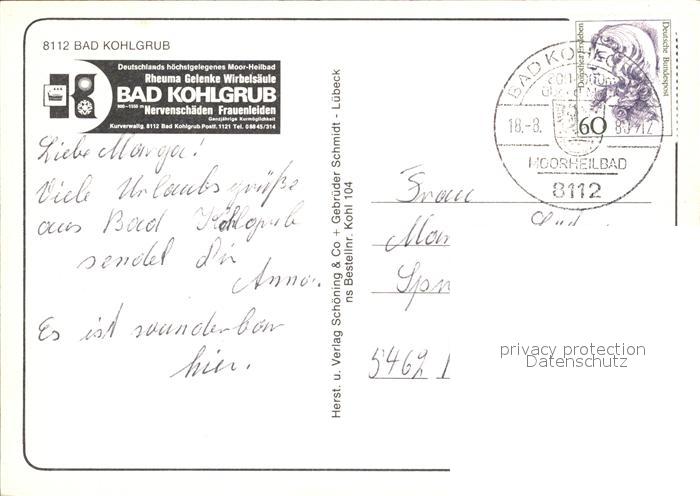 8112 BAD KOHLGRUB
Deutschlands höchstgelegenes Moor-Heilbad
Rheuma Gelenke Wirbelsäule
BAD KOHLGRUB
900–1550 m Nervenschäden Frauenleiden
Ganzjährige Kurmöglichkeit
Kurverwaltg. 8112 Bad Kohlgrub Postf. 1121 Tel. 08845/314
Liebe Marga!
Viele Urlaubsgrüße
aus Bad Kohlgrub
sendet Dir
Anna.
Es ist wunderbar
hier.
Herst. u. Verlag Schöning & Co + Gebrüder Schmidt - Lübeck
ns Bestellnr. Kohl 104
Deutsche Bundespost
60
BAD KOHLG
18.-8.
MOORHEILBAD
8112
Frau
Mar
Spr
5462
privacy protection
Datenschutz